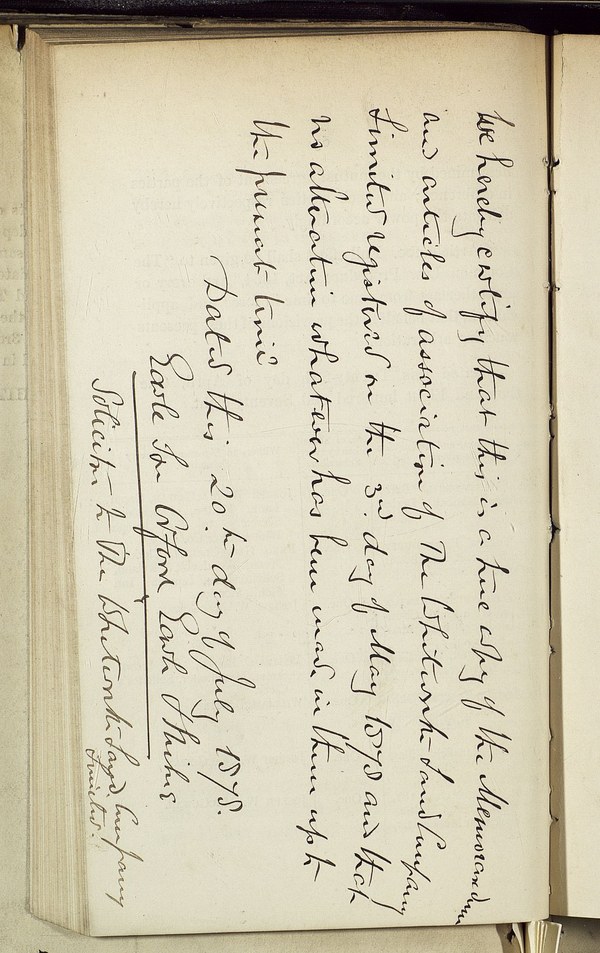 We hereby certify that this is a true copy of the Memorandum
and articles of association of The Whitworth Land Company
Limited registered on the 3rd day of May 1878 and that
no alteration whatever has been made in them up to
the present time
Dated this 20th day of July 1878.
Earle Son Orford Earle &
Solicitors to The Whitworth Land Company
Limited.